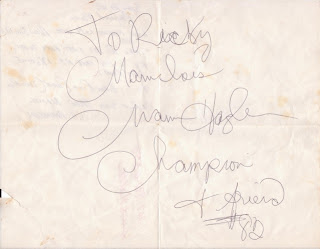 To Rocky
Marvelous
Marvin Hagler
Champion
+ friend
82